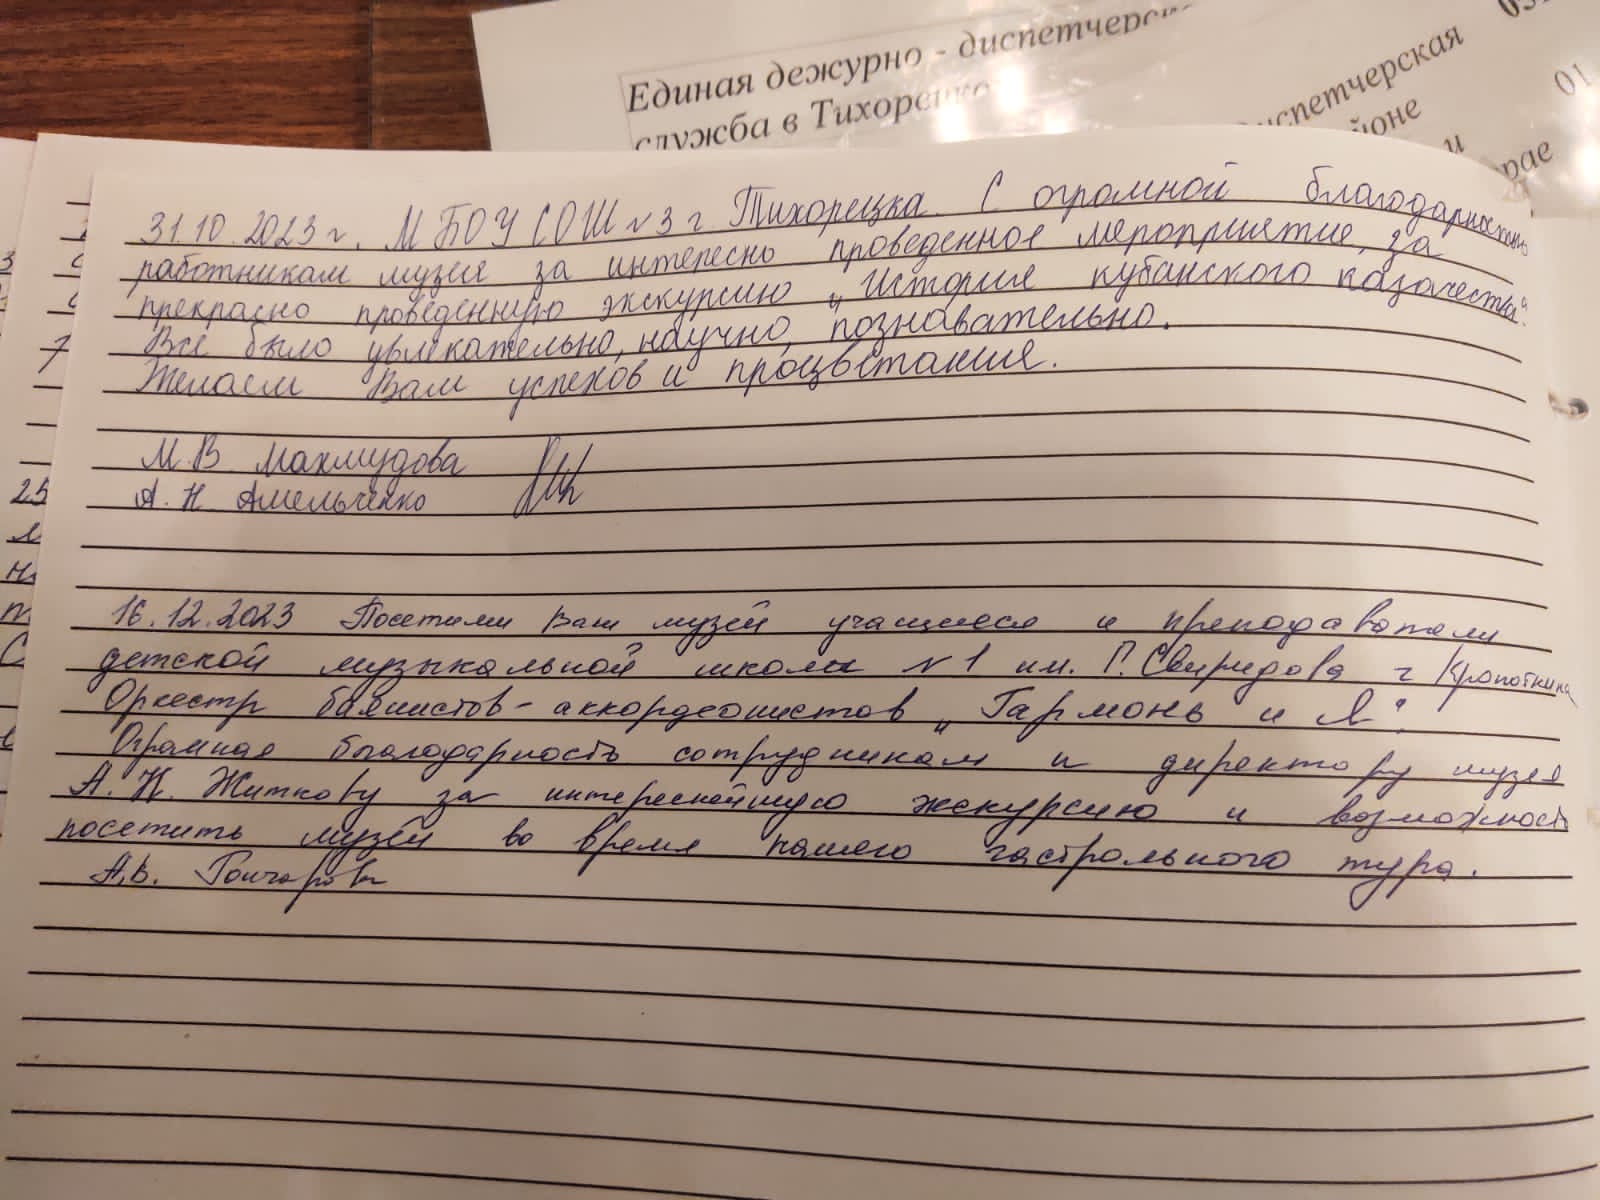 Единая дежурно - диспетчерск
служба в Тихорецко
диспетчерская
районе
и
крае
01
31.10.2023г. МБОУ СОШ №3 г. Тихорецка. С огромной благодарностью
работникам музея за интересно проведенное мероприятие, за
прекрасно проведенную экскурсию „История кубанского казачества".
Всё было увлекательно, научно, познавательно.
Желаем Вам успехов и процветания.
М.В. Махмудова
А.Н. Амельченко
16.12.2023 Посетили Ваш музей учащиеся и преподаватели
детской музыкальной школы №1 им. Г. Свиридова г Кропоткина
Оркестр баянистов-аккордеонистов „Гармонь и Я".
Огромная благодарность сотрудникам и директору музея
А.Н. Житкову за интереснейшую экскурсию и возможность
посетить музей во время нашего гастрольного тура.
А.В. Гончарова